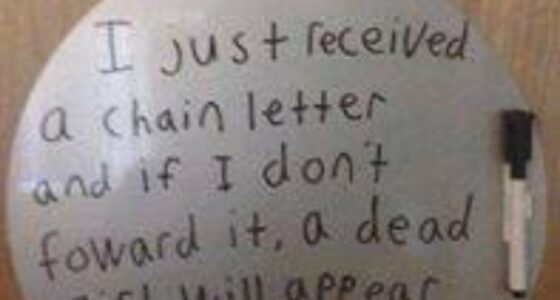 I just received
a chain letter
and if I don't
foward it, a dead
girl will appear